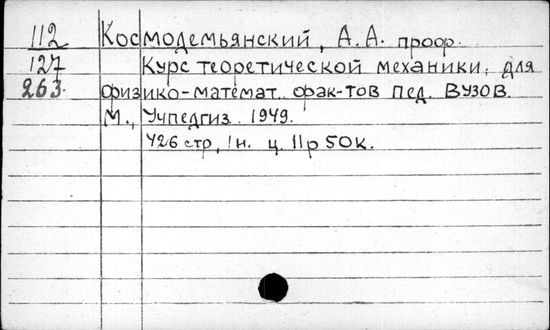 112 Космодемьянский, А.А. проф.
127 Курс теоретической механики, для
263. физико-математ. фак-тов пед. ВУЗОВ.
М., Учпедгиз. 1949.
426 стр, 1н. ц. 11р 50к.